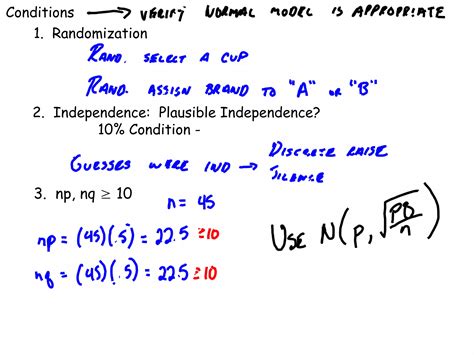 Conditions → VERIFY NORMAL MODEL IS APPROPRIATE
1. Randomization
RAND. SELECT A CUP
RAND. ASSIGN BRAND TO "A" or "B"
2. Independence: Plausible Independence?
10% Condition -
GUESSES WERE IND → DISCRETE RAISE
SILENCE
3. np, nq ≥ 10
n = 45
np = (45)(.5) = 22.5 ≥10
nq = (45)(.5) = 22.5 ≥10
USE N(p, √(pq/n))